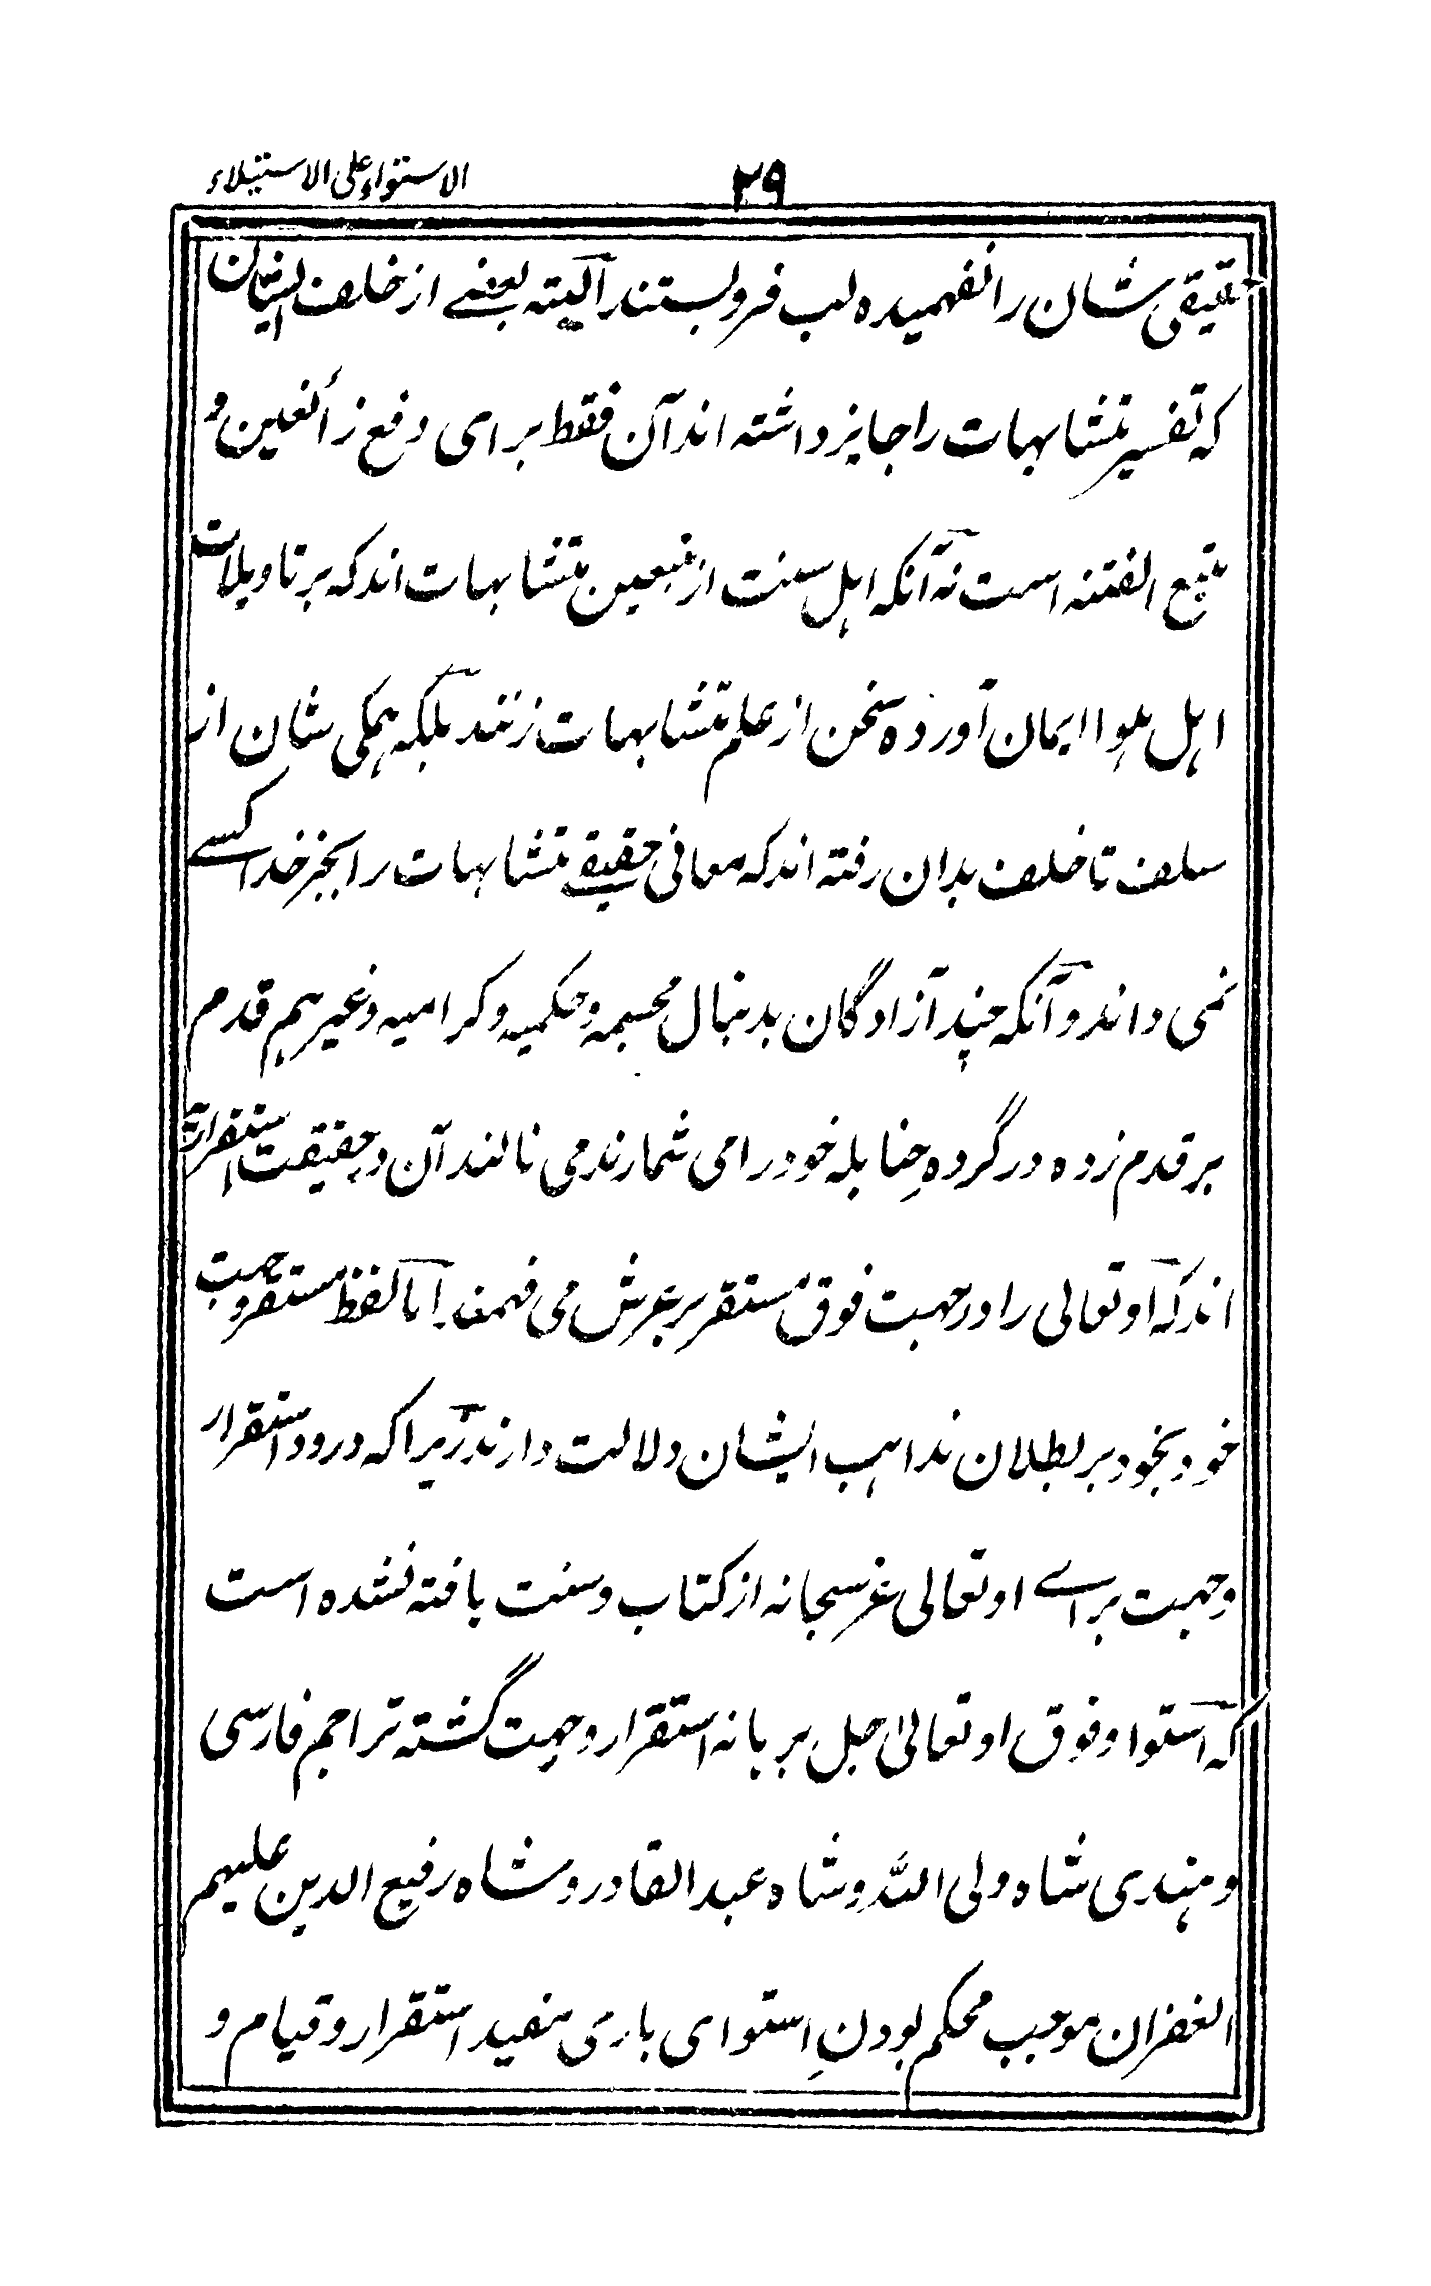 ۲۹ الاستواء علی الاستیلاء
حقیقی شان را نفهمیده لب فروبستند البته بعضے از خلف ایشان
که تفسیر متشابهات را جایز داشته اند آن فقط برای دفع زائغین و
متبع الفتنه است نه آنکه اهل سنت از متبعین متشابهات اند که بر تاویلات
اهل هوا ایمان آورده سخن از علم متشابهات زنند بلکه همگی شان از
سلف تا خلف بدان رفته اند که معانی حقیقے متشابهات را بجز خدا کسے
نمی داند و آنکه چند آزادگان بدنبال مجسمه و حکمیه و کرامیه و غیرهم قدم
بر قدم زده در گروه حنابله خود را می شمارند می نالند آن در حقیقت استقرائیه
اند که او تعالی را در جهت فوق مستقر بر عرش می فهمند اما لفظ مستقر و جهت
خود بخود بر بطلان مذاهب ایشان دلالت دارند زیرا که درود استقرار
و جهت براے او تعالی عز سبحانه از کتاب و سنت یافته نشده است
که استوا و فوق او تعالیٰ جل بربانه استقرار و جهت گشته تراجم فارسی
و هندی شاه ولی الله و شاه عبد القادر و شاه رفیع الدین علیهم
الغفران موجب محکم بودنِ استوای باری مفید استقرار و قیام و